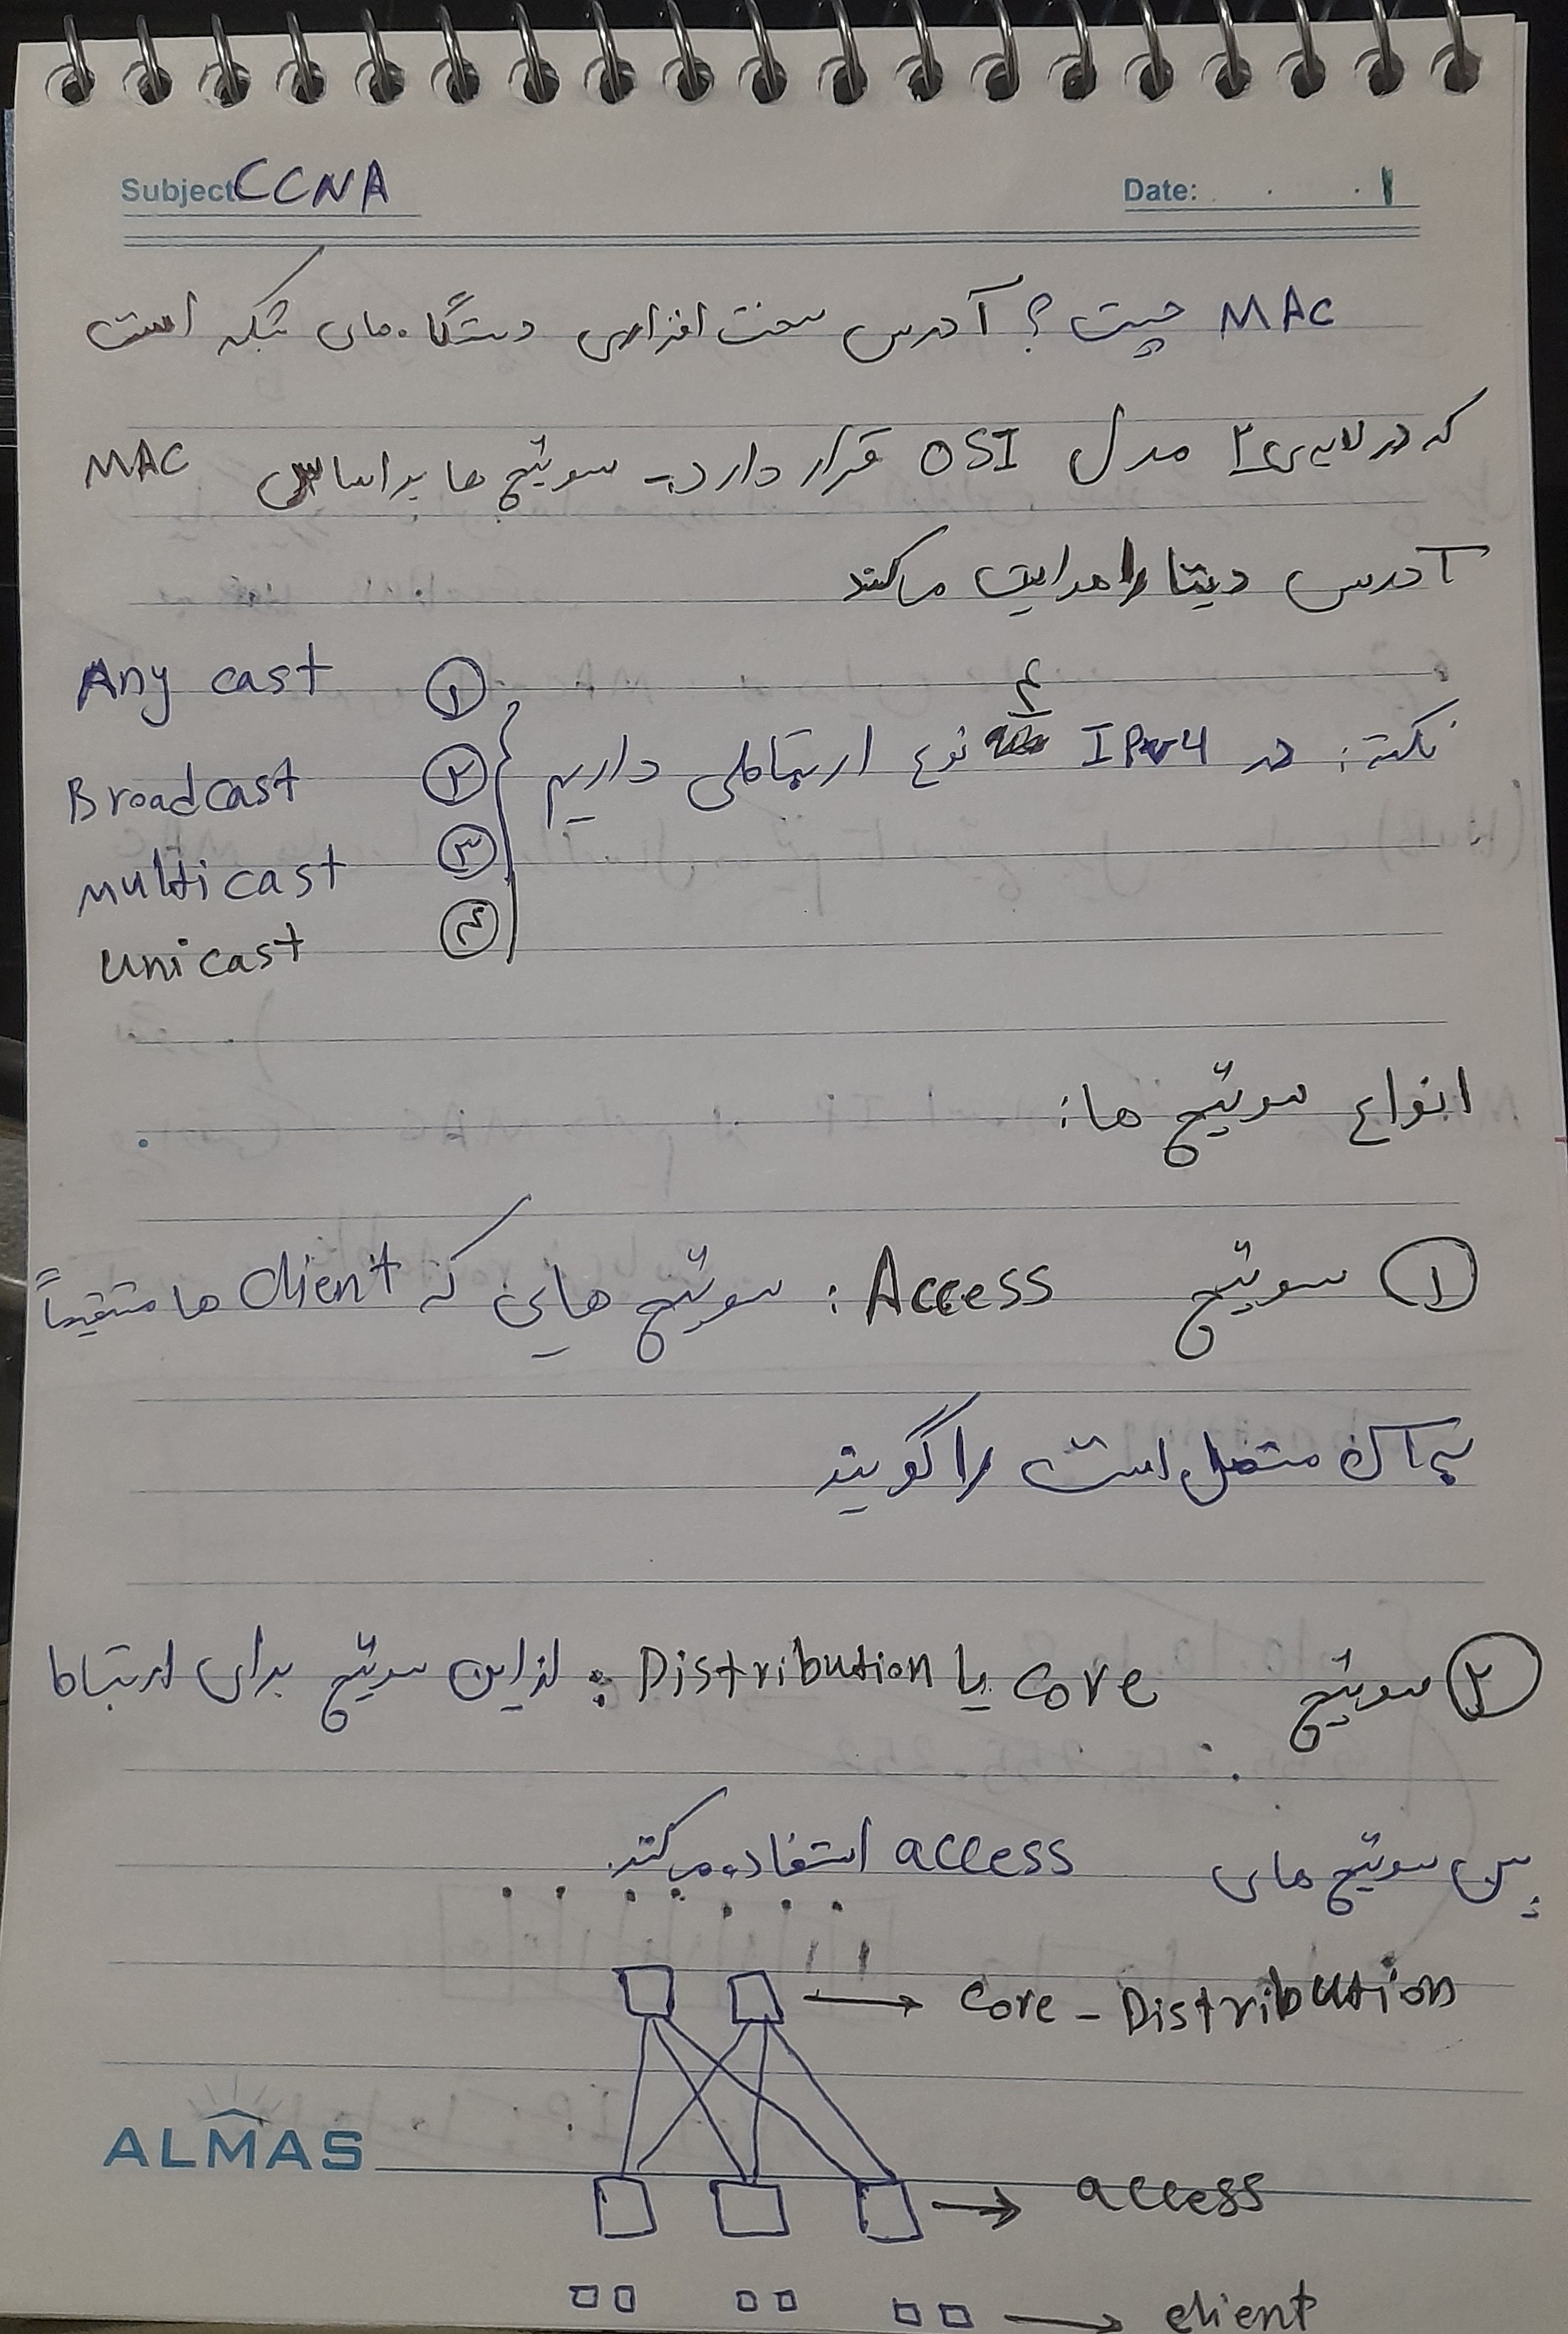 Subject: CCNA
Date: 1
MAC چیست؟ آدرس سخت افزاری دستگاه های شبکه است
که در لایه ی ۲ مدل OSI قرار دارد. سوئیچ ها بر اساس MAC
آدرس دیتا را هدایت می کنند
نکته: در IPv4 ۴ نوع ارتباطی داریم
① Any cast
② Broadcast
③ multicast
④ unicast
انواع سوئیچ ها:
① سوئیچ Access : سوئیچ هایی که client ها مستقیماً
به آن متصل است را گویند
② سوئیچ Core یا Distribution : از این سوئیچ برای ارتباط
بین سوئیچ های access استفاده می کنند.
Core - Distribution
access
client
ALMAS